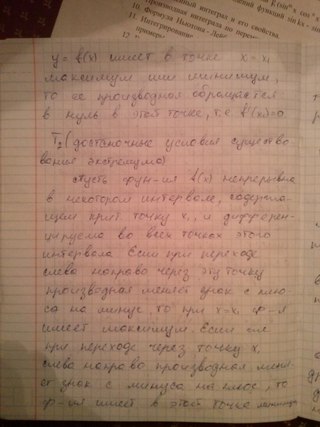 10. Формула Ньютона - Лейб
11. Интегрирование
y = f(x) имеет в точке x = x₁
максимум или минимум,
то ее производная обращается
в нуль в этой точке, т.е f'(x₁)=0
T₂ (достаточные условия существо
вания экстремума)
Пусть фун-ия f(x) непрерывна
в некотором интервале, содержа
щем крит точку x₁, и дифферен-
цируема во всех точках этого
интервала Если при переходе
слева направо через эту точку
производная меняет знак с плю
са на минус, то при x=x₁ ф-я
имеет максимум. Если же
при переходе через точку x₁
слева направо производная меня
ет знак с минуса на плюс, то
ф-ия имеет в этой точке минимум